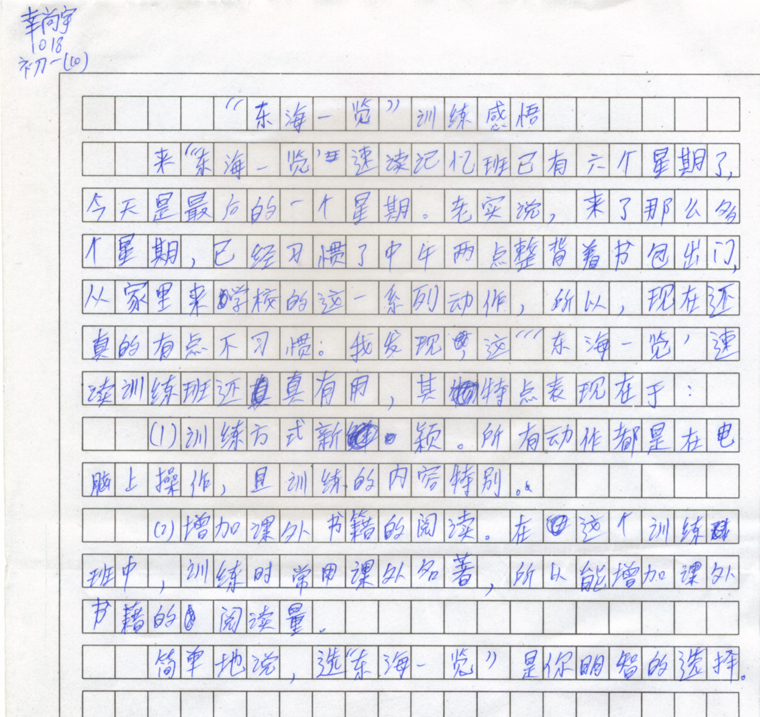 幸尚宇
1018
初一(10)
“东海一览”训练感悟
来“东海一览”速读记忆班已有六个星期了，
今天是最后的一个星期。老实说，来了那么多
个星期，已经习惯了中午两点整背着书包出门，
从家里来学校的这一系列动作，所以，现在还
真的有点不习惯。我发现这“东海一览’速
读训练班还真有用，其特点表现在于：
(1)训练方式新颖。所有动作都是在电
脑上操作，且训练的内容特别。
(2)增加课外书籍的阅读。在这个训练
班中，训练时常用课外名著，所以能增加课外
书籍的阅读量。
简单地说，选“东海一览”是你明智的选择。